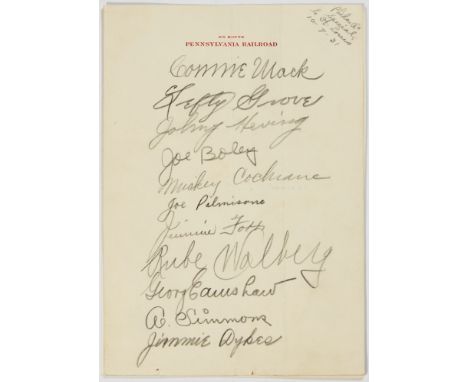 EN ROUTE
PENNSYLVANIA RAILROAD
Phila A's
Special
to St Louis
10-8-31
Connie Mack
Lefty Grove
Johny Heving
Joe Boley
Mickey Cochrane
Joe Palmisano
Jimmie Foxx
Rube Walberg
Geo Earnshaw
A. Simmons
Jimmie Dykes